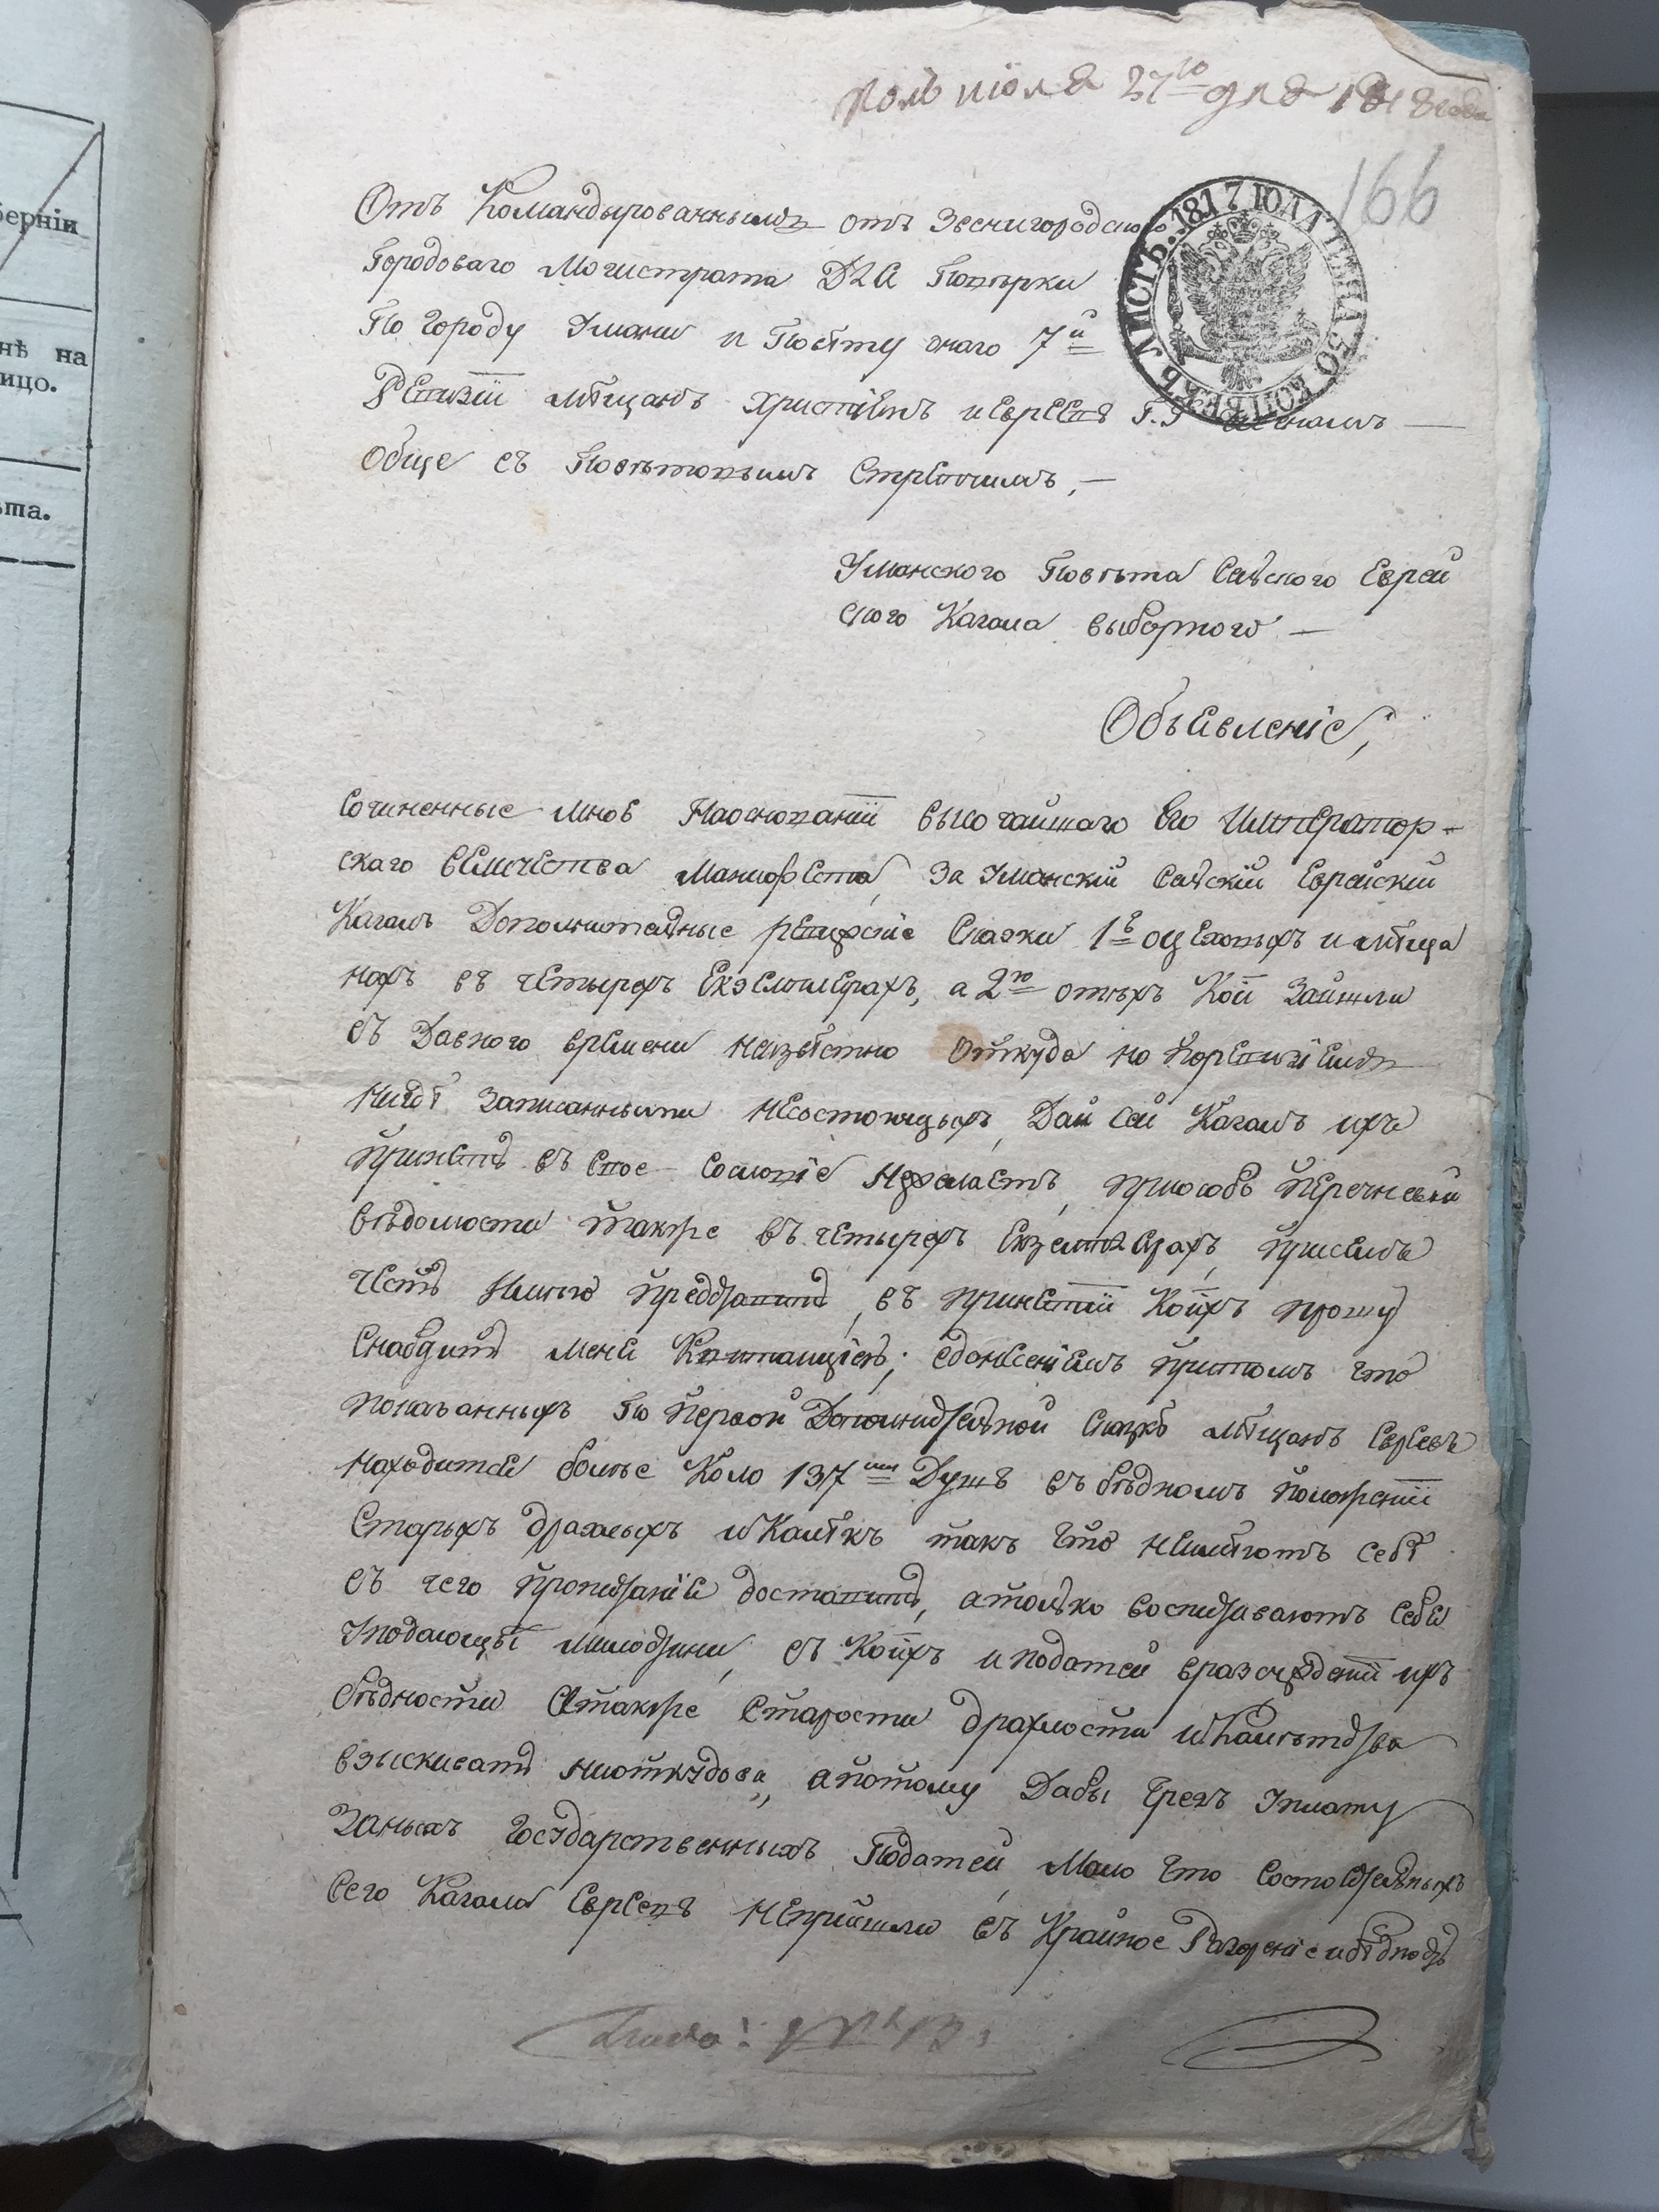 июля 27го дня 1818 года
166
ЛИСТЪ. 1817 ГОДА ЦѢНА 50 КОПѢЕКЪ
Отъ Командированнымъ отъ Звенигородского
Городоваго Могистрата Для Повѣрки
По Городу Умани и Повѣту онаго 7й
Ревизіи мѣщанъ христіянъ и евреевъ Г.Г. Членамъ
Обще съ Повѣтовымъ Стряпчимъ,
Уманского Повѣта Сельского Еврей
ского Кагала выборного
Объявленіе,
Сочиненные мною Наосновании высочайшаго Его Император-
скаго величества Манифеста, За Уманский Сельский Еврейский
Кагалъ Дополнительные ревижские Сказки 1е оцеховыхъ и мѣща
нахъ въ четырехъ Екземплярахъ, а 2ю отѣхъ Кои Зайшли
съ Давного времени неизвѣстно Откуда по поревизіямъ
Нигдѣ Записанными несостоящыхъ, Дай сей Кагалъ ихъ
принять въ свое сословіе нежелаетъ, приособѣ перечневыи
вѣдомости также въ четырехъ Екземплярахъ, присемъ
Честь Имѣю представить, въ принятии Коихъ прошу
Снабдить меня Квитанціею; здонесеніемъ притомъ что
показанныхъ По первой Дополнительной Сказкѣ мѣщанъ Евреевъ
находится болѣе Коло 137ми Душъ въ бѣдномъ положении
Старыхъ драхлыхъ и Калѣкъ такъ что неимѣютъ себѣ
съ чего пропитанія доставить, атолько воспитываютъ себя
Уподающыя милостини, съ Коихъ и податей вразсуждении ихъ
бѣдности Атакже Старости драхлости и Калѣтства
взыскивать ниоткудова, апотому Дабы чрезъ Уплату
Заныхъ Государственныхъ Податей, Мало что состоятельныхъ
Сего Кагала Евреевъ неприйшли въ Крайное Разореніе ибѣдность